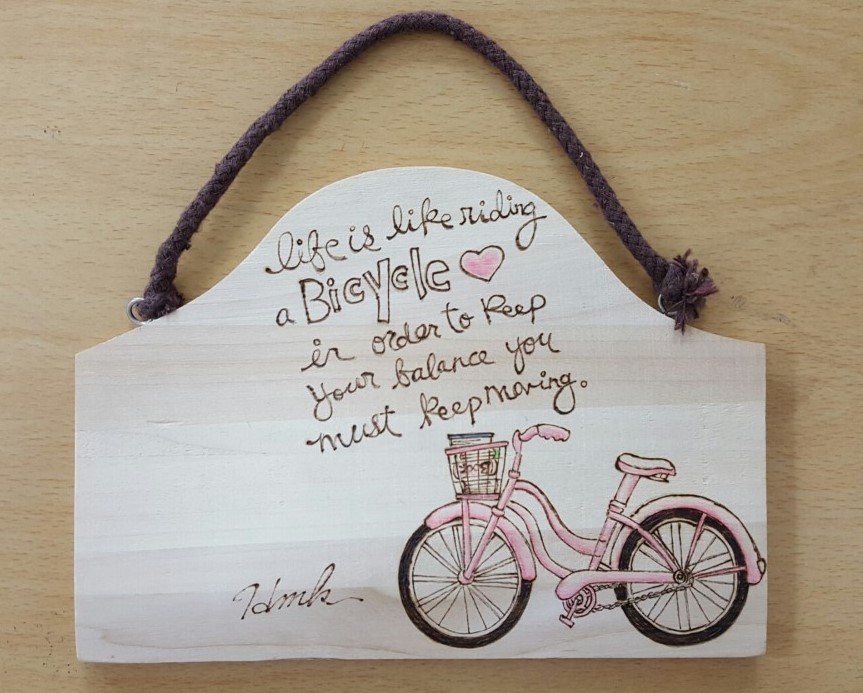 life is like riding
a Bicycle
in order to keep
your balance you
must keep moving.